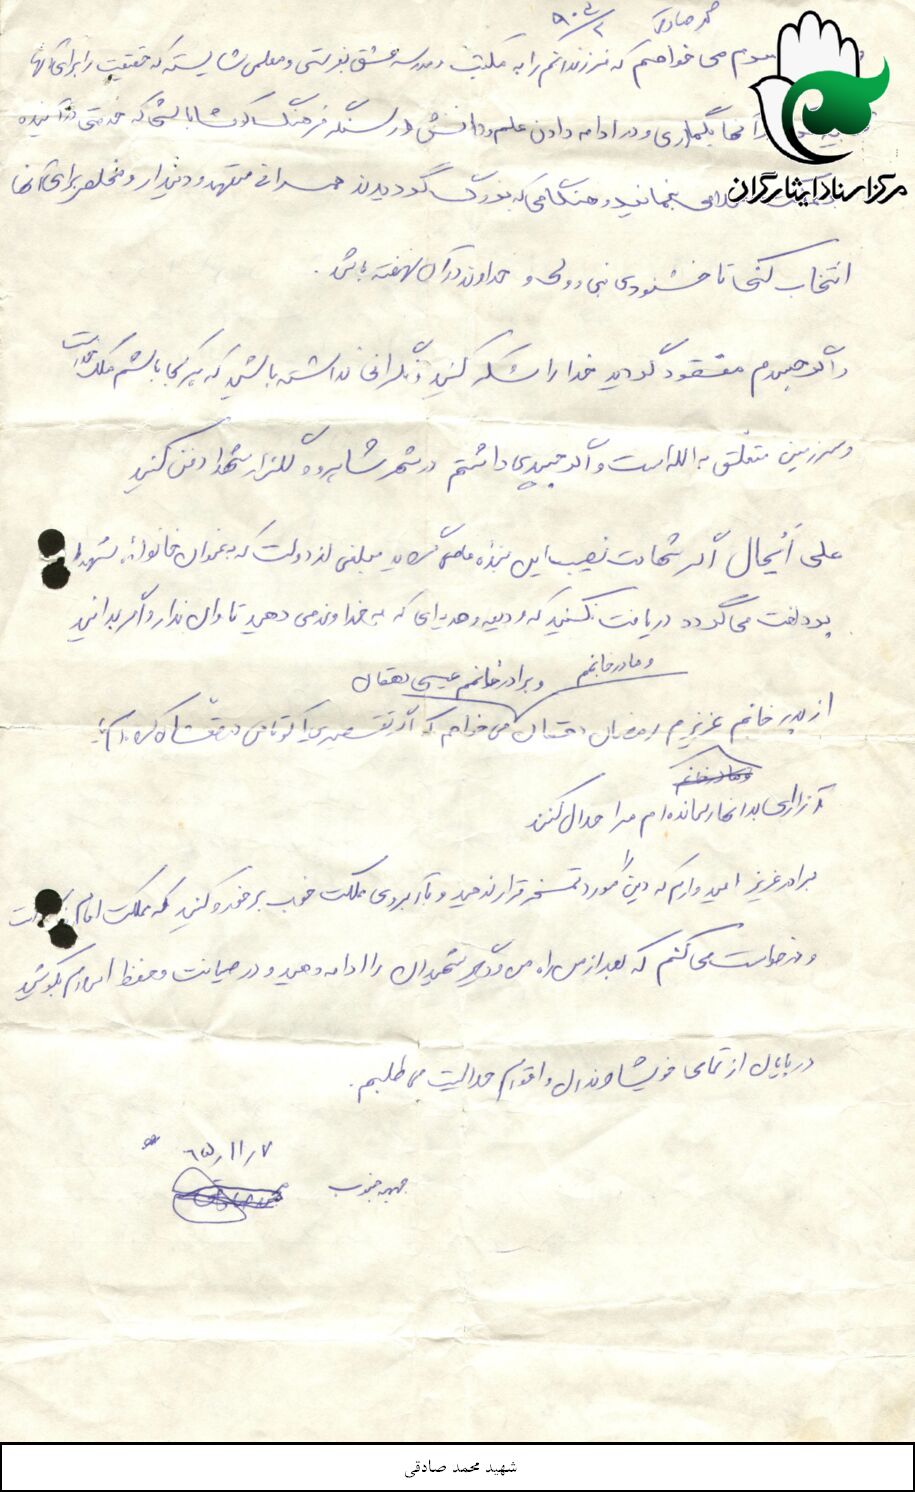 محمد صادقی
می خواهم که فرزندانم را به مکتب و مدرسه عشق بفرستی و معلمی شایسته که حقیقت را برای آنها
آنها بگماری و در ادامه دادن علم و دانش در سنگر فرهنگ کوشا باشی که خدمتی در آینده
مرکز اسناد ایثارگران
بنمایند و هنگامی که بزرگ گردیدند همسرانی متعهد و دیندار و مخلص برای آنها
انتخاب کنی تا خشنودی نبی و ولی و خداوند در آن نهفته باشد.
و اگر جسدم مفقود گردید خدا را شکر کنید و نگرانی نداشته باشید که هر کجا باشم ملک خداست
و سرزمین متعلق به الله است و اگر جسدی داشتم در شهر شاهرود گلزار شهدا دفن کنید
علی ایحال اگر شهادت نصیب این بنده عاصی گردید مبلغی از دولت که بعنوان خانواده شهدا
پرداخت می گردد دریافت نکنید که و هدیه ای که به خداوند می دهید تاوان ندارد و اگر بدانید
و مادر خانمم و برادر خانمم عیسی دهقان
از پدر خانم عزیزم رمضان دهقان می خواهم که اگر تقصیری یا کوتاهی در حقشان کرده ام
آزاری بدانها رسانده ام مرا حلال کنند
برادر عزیز امیدوارم که دین را مورد تمسخر قرار ندهید و با آبروی مملکت خوب برخورد کنید که مملکت امام زمان است
و درخواست می کنم که بعد از من راه من و دیگر شهیدان را ادامه دهید و در صیانت و حفظ اسلام بکوشید
در پایان از تمامی خویشاوندان و اقوام حلالیت می طلبم.
۶۵/۱۱/۷
جبهه جنوب
شهید محمد صادقی